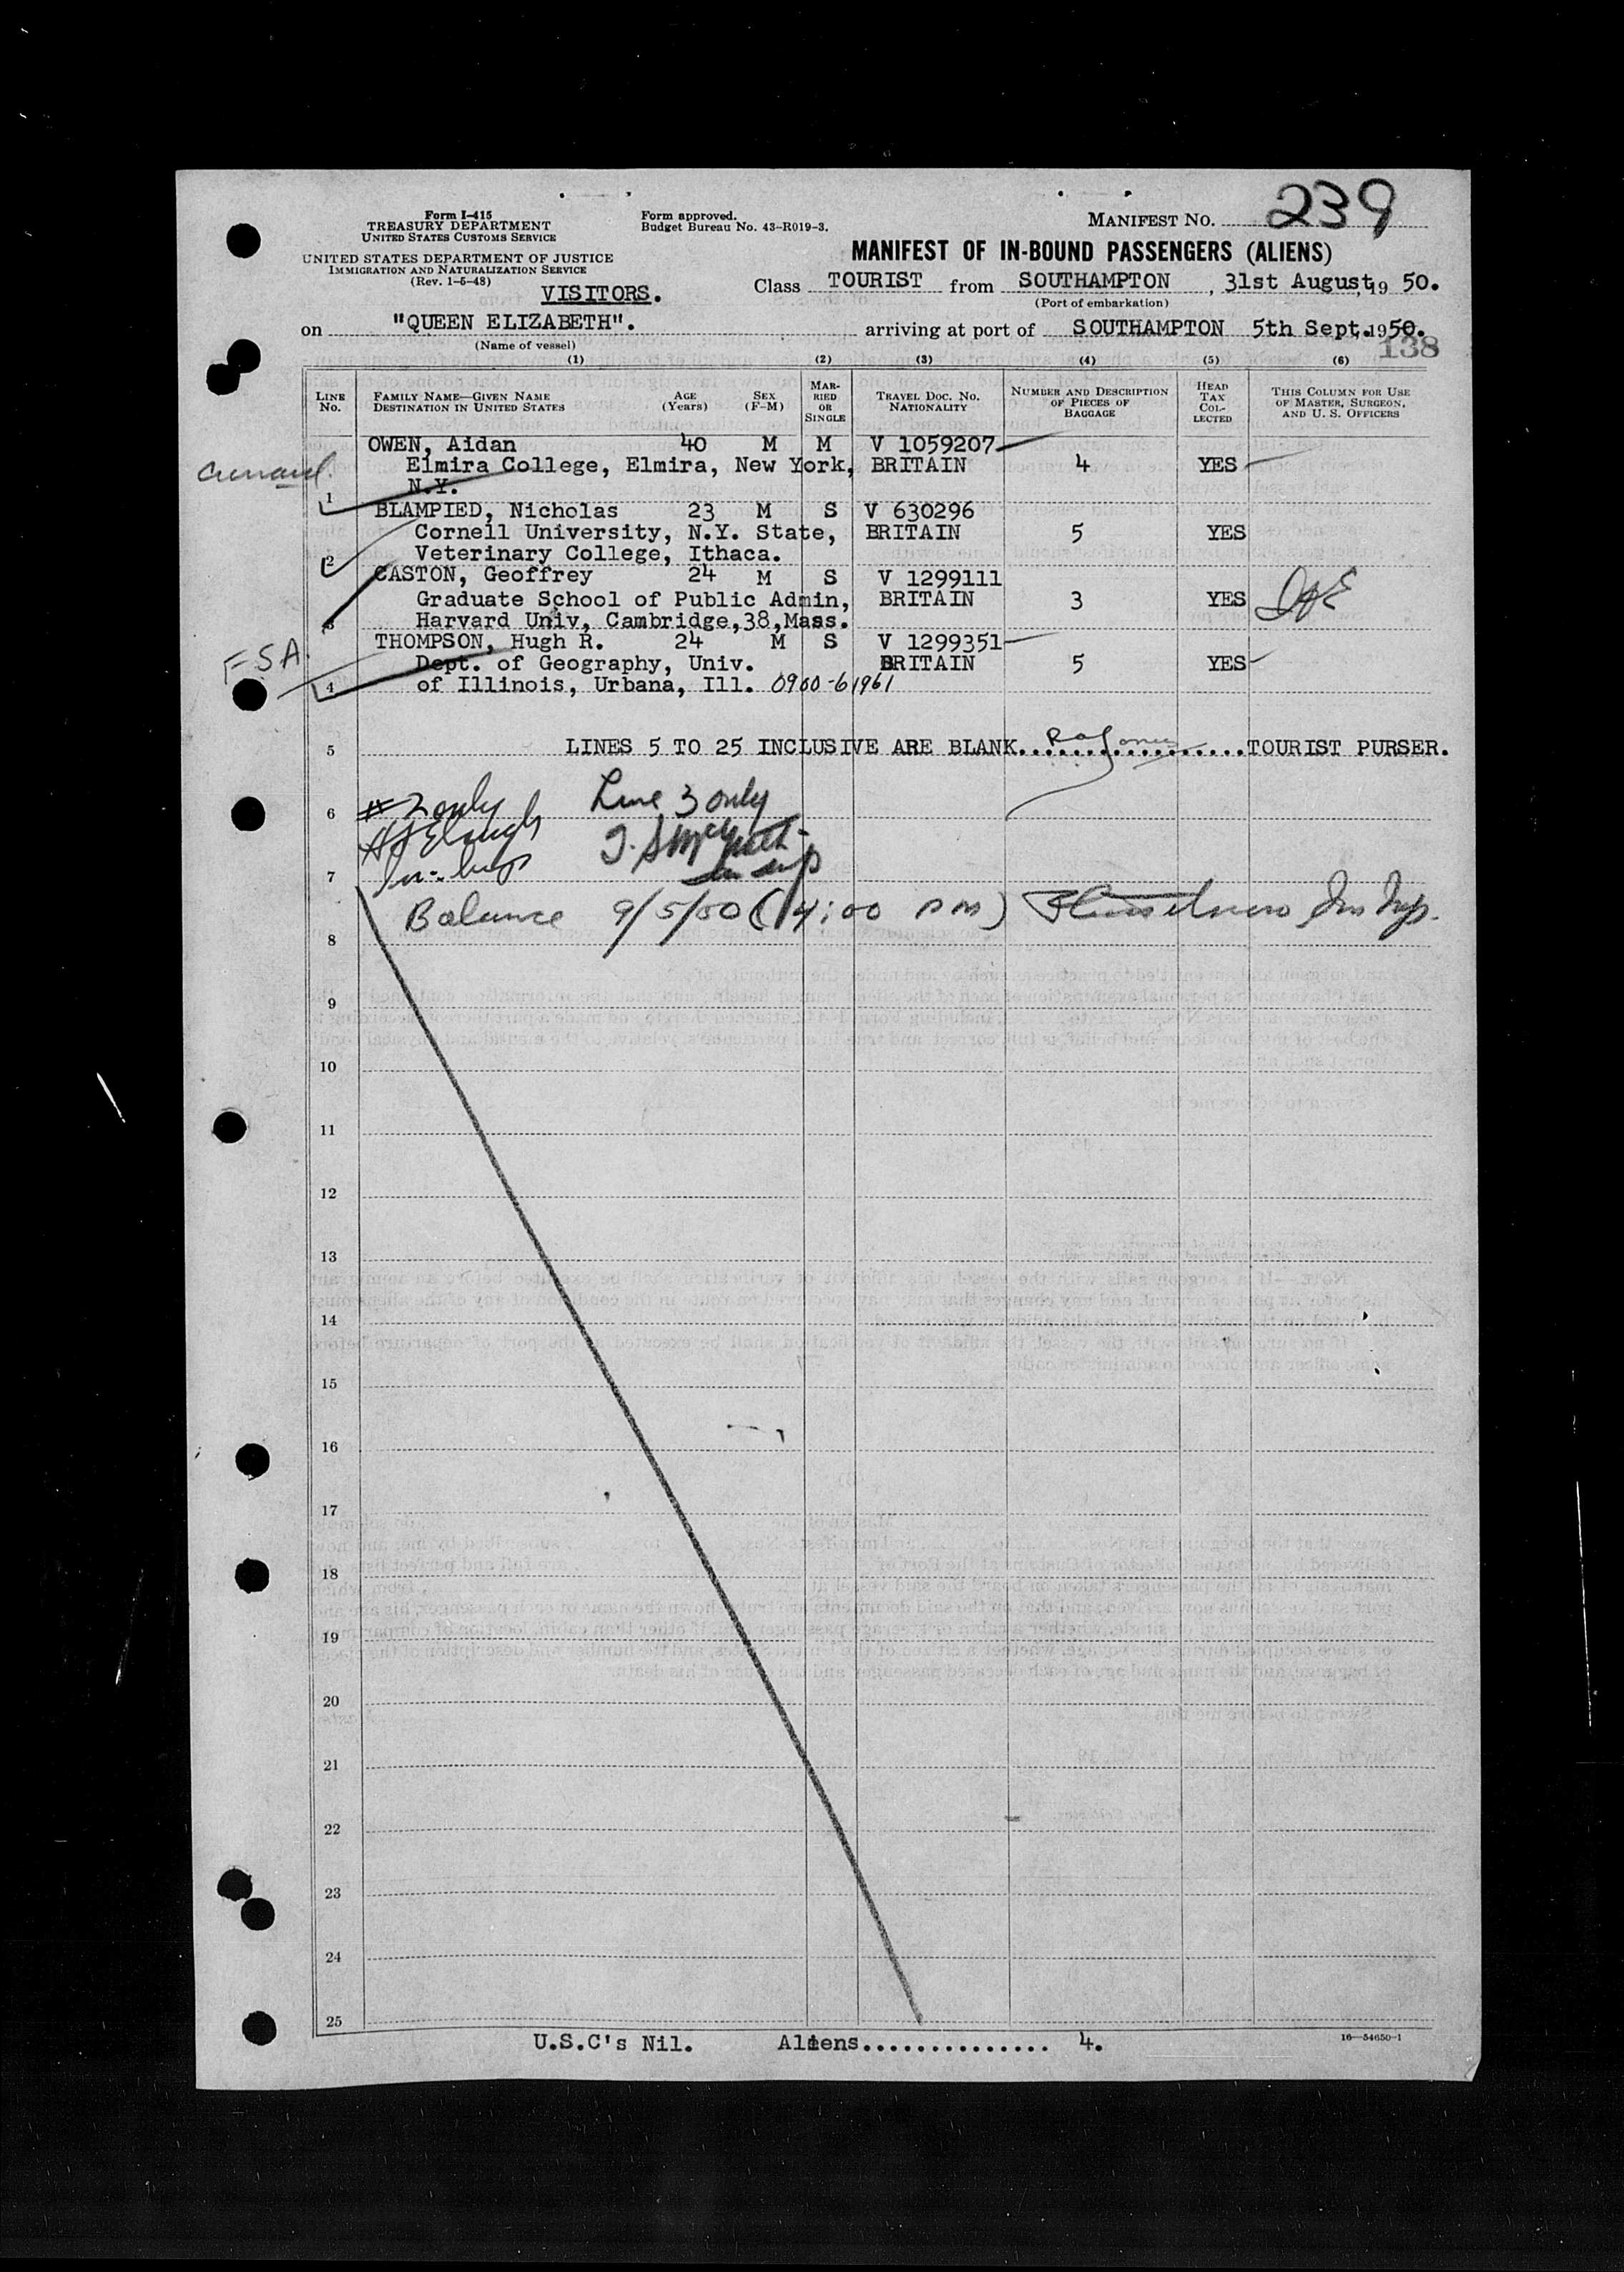 Form I-415
TREASURY DEPARTMENT
UNITED STATES CUSTOMS SERVICE
UNITED STATES DEPARTMENT OF JUSTICE
IMMIGRATION AND NATURALIZATION SERVICE
(Rev. 1-5-48)
Form approved.
Budget Bureau No. 43-R019-3.
MANIFEST NO. 239
MANIFEST OF IN-BOUND PASSENGERS (ALIENS)
VISITORS.
Class TOURIST from SOUTHAMPTON, 31st August, 19 50.
(Port of embarkation)
on "QUEEN ELIZABETH". arriving at port of SOUTHAMPTON 5th Sept. 1950.
(Name of vessel)
138
(1) (2) (3) (4) (5) (6)
LINE No. FAMILY NAME—GIVEN NAME DESTINATION IN UNITED STATES AGE (Years) SEX (F-M) MARRIED OR SINGLE TRAVEL DOC. NO. NATIONALITY NUMBER AND DESCRIPTION OF PIECES OF BAGGAGE HEAD TAX COLLECTED THIS COLUMN FOR USE OF MASTER, SURGEON, AND U. S. OFFICERS
OWEN, Aidan 40 M M V 1059207
Elmira College, Elmira, New York, BRITAIN 4 YES
1 N.Y.
BLAMPIED, Nicholas 23 M S V 630296
Cornell University, N.Y. State, BRITAIN 5 YES
2 Veterinary College, Ithaca.
CASTON, Geoffrey 24 M S V 1299111
Graduate School of Public Admin, BRITAIN 3 YES
3 Harvard Univ, Cambridge,38,Mass.
THOMPSON, Hugh R. 24 M S V 1299351
FSA. Dept. of Geography, Univ. BRITAIN 5 YES
4 of Illinois, Urbana, Ill. 0900-61961
5 LINES 5 TO 25 INCLUSIVE ARE BLANK..................TOURIST PURSER.
6 #2 only Line 3 only
7
Balance 9/5/50 (4:00 PM) Im Insp.
8
9
10
11
12
13
14
15
16
17
18
19
20
21
22
23
24
25
U.S.C's Nil. Aliens............... 4.
16—54650-1